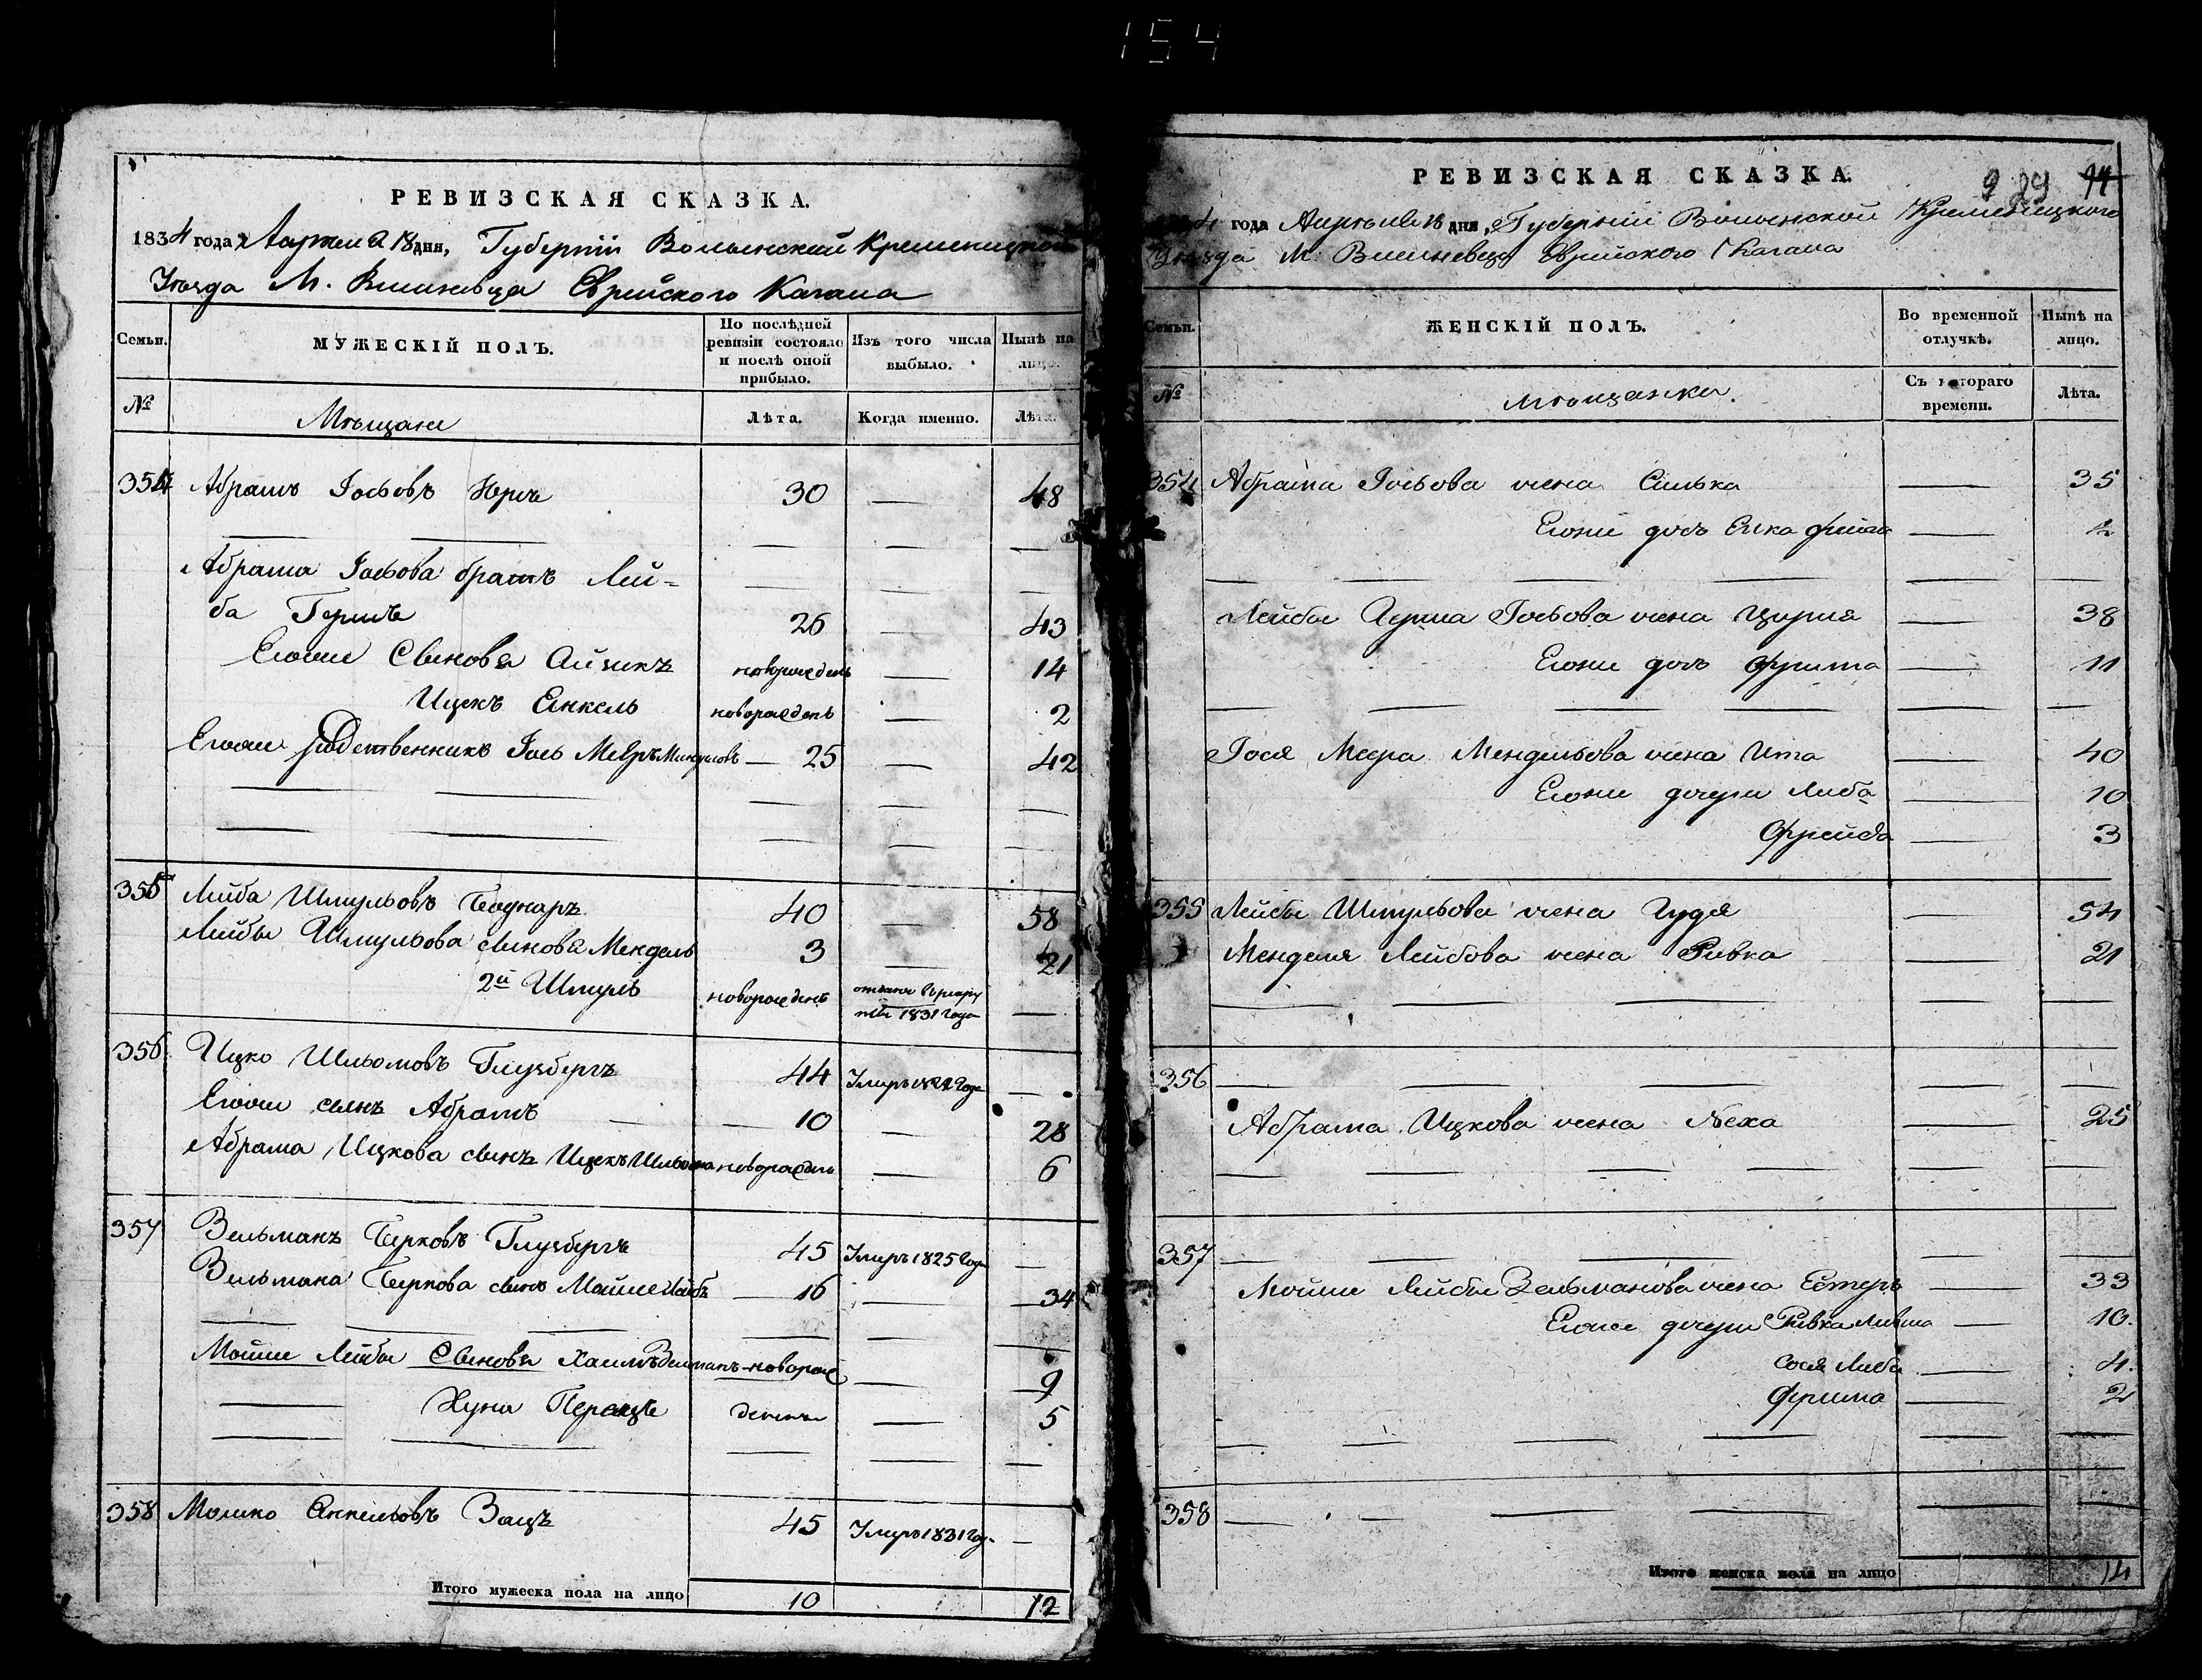 154
РЕВИЗСКАЯ СКАЗКА.
1834 года Апреля 18 дня, Губерніи Волынской Кременецкого
Уезда М. Вишневца Еврейского Кагала
Семьи.
МУЖЕСКІЙ ПОЛЪ.
По послѣдней ревизіи состояло и послѣ оной прибыло.
Изъ того числа выбыло.
Нынѣ на лицо.
№
Мѣщане
Лѣта.
Когда именно.
Лѣта.
354 Абрамъ Іосьовъ 30 — 48
Абрама Іосьова братъ Лей=
ба Гершъ 26 — 43
Егоже Сыновья Айзикъ новорожденъ — 14
Ицекъ Янкель новорожденъ — 2
Егоже родственникъ Іось Мееръ Мендельовъ — 25 — 42
355 Лейба Шмульовъ Боднаръ 40 — 58
Лейбы Шмульова сыновья Мендель 3 — 21
2й Шмуль новорожденъ отданъ въ рекру
ты 1831 года —
356 Ицко Шльомовъ Глузбергъ 44 Умеръ 1822 Года —
Егоже сынъ Абрамъ — 10 — 28
Абрама Ицкова сынъ Ицекъ Шльома новорожденъ — 6
357 Зельманъ Берковъ Глузбергъ 45 Умеръ 1825 Года —
Зельмана Беркова сынъ Мойше Лейба — 16 — 34
Мойше Лейбы Сыновья Хаимъ Зельманъ — новорож — 9
Хуна Перецъ денъ — 5
358 Мошко Янкельовъ Зацъ 45 Умеръ 1831 Год. —
Итого мужеска пола на лицо 10 12
РЕВИЗСКАЯ СКАЗКА.
9 89 94
4 года Апрѣля 18 дня, Губерніи Волынской Кременецкого
Уезда М. Вишневца Еврейского Кагала
Семьи.
ЖЕНСКІЙ ПОЛЪ.
Во временной отлучкѣ.
Нынѣ на лицо.
№
Мѣщанки.
Съ котораго времени.
Лѣта.
354 Абрама Іосьова жена Силька — 35
Егоже дочь Ейка — 2
Лейбы Герша Іосьова жена Цирля — 38
Егоже дочь Фрима — 11
Іося Меера Мендельова жена Ита — 40
Егоже дочери Либа — 10
Фрейда — 3
355 Лейбы Шмульова жена Гудя — 54
Менделя Лейбова жена Ривка — 21
356 —
Абрама Ицкова жена Неха — 25
357 —
Мойше Лейбы Зельманова жена Естеръ — 33
Егоже дочери Ривка — 10.
Сося Либа — 4.
Фрима — 2
358 —
Итого женска пола на лицо 14